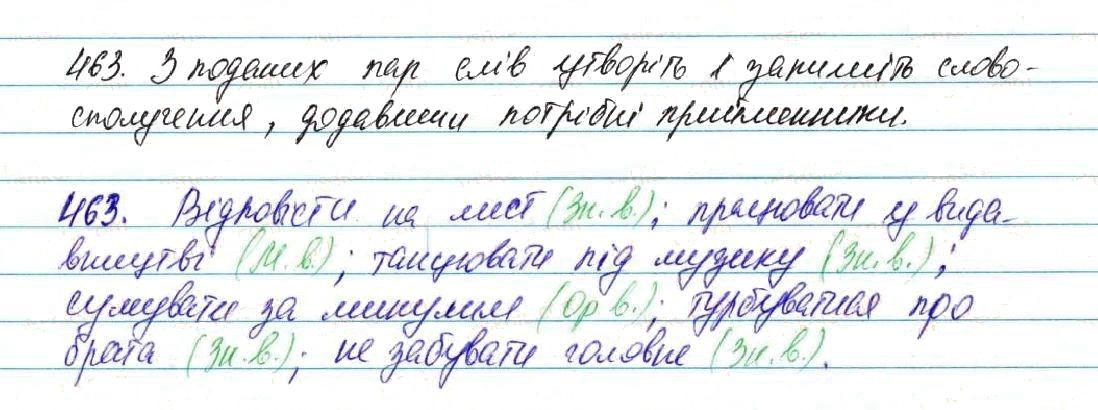 463. З поданих пар слів утворіть і запишіть слово-
сполучення, додавши потрібні прийменники.
463. Відповісти на лист (Зн. в.); працювати у вида-
вництві (М. в.); танцювати під музику (Зн. в.);
сумувати за минулим (Ор в.); турбуватися про
брата (Зн. в.); не забувати головне (Зн. в.).